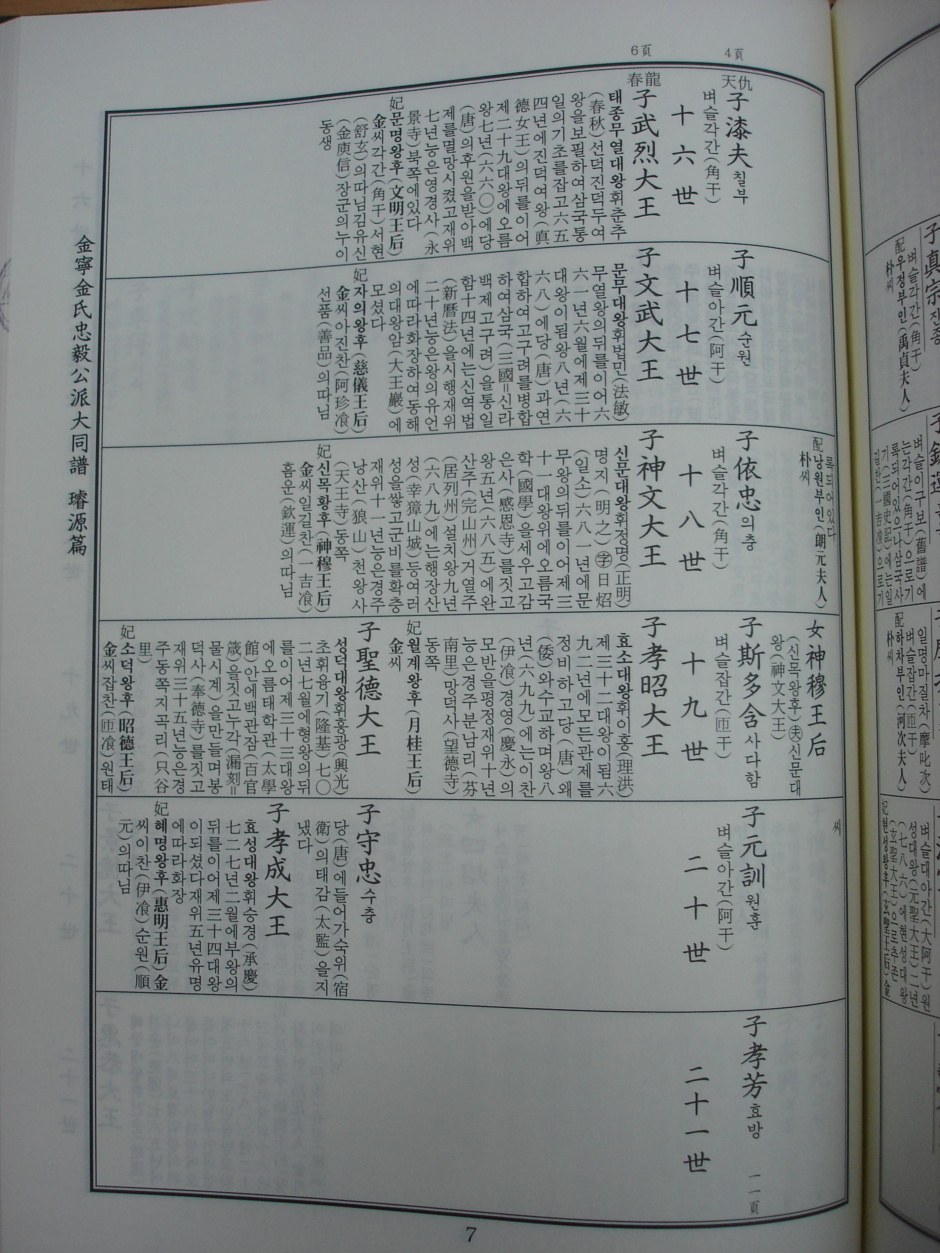 4頁
6頁
天仇
子漆夫 칠부
벼슬각간(角干)
十六世
春龍
子武烈大王
태종무열대왕휘춘추
(春秋)선덕진덕두여
왕을보필하여삼국통
일의기초를잡고六五
四년에진덕여왕(真
德女王)의뒤를이어
제二十九대왕에오름
왕七년(六六〇)에당
(唐)의후원을받아백
제를멸망시켰고재위
七년능은영경사(永
景寺)북쪽에있다
妃문명왕후(文明王后)
金씨각간(角干)서현
(舒玄)의따님김유신
(金庾信)장군의누이
동생
子順元 순원
벼슬아간(阿干)
十七世
子文武大王
문무대왕휘법민(法敏)
무열왕의뒤를이어六
六一년六월에제三十
대왕이됨왕八년(六
六八)에당(唐)과연
합하여고구려를병합
하여삼국(三國=신라
백제고구려)을통일
함十四년에는신역법
(新曆法)을시행재위
二十년능은왕의유언
에따라화장하여동해
의대왕암(大王巖)에
모셨다
妃자의왕후(慈儀王后)
金씨아진찬(阿珍飡)
선품(善品)의따님
록되어있다
配낭원부인(朗元夫人)
朴씨
子依忠 의충
벼슬각간(角干)
十八世
子神文大王
신문대왕휘정명(正明)
명지(明之)字日炤
(일소)六八一년에문
무왕의뒤를이어제三
十一대왕위에오름국
학(國學)을세우고감
은사(感恩寺)를짓고
왕五년(六八五)에완
산주(完山州)거열주
(居列州)설치왕九년
(六八九)에는행장산
성(幸獐山城)등여러
성을쌓고군비를확충
재위十一년능은경주
낭산(狼山)천왕사
(天王寺)동쪽
妃신목황후(神穆王后)
金씨일길찬(一吉飡)
흠운(欽運)의따님
女神穆王后
(신목왕후)夫신문대
왕(神文大王)
子斯多含 사다함
벼슬잡간(匝干)
十九世
子孝昭大王
효소대왕휘이홍(理洪)
제三十二대왕이됨六
九二년에모든관제를
정비하고당(唐)왜
(倭)와수교하며왕八
년(六九九)에는이찬
(伊飡)경영(慶永)의
모반을평정재위十년
능은경주분남리(芬
南里)망덕사(望德寺)
동쪽
妃월계왕후(月桂王后)
金씨
子聖德大王
성덕대왕휘흥광(興光)
초휘융기(隆基)七〇
二년七월에형왕의뒤
를이어제三十三대왕
에오름태학관(太學
館)안에백관잠(百官
箴)을짓고누각(漏刻=
물시계)을만들며봉
덕사(奉德寺)를짓고
재위三十五년능은경
주동쪽지곡리(只谷
里)
妃소덕왕후(昭德王后)
金씨잡찬(匝飡)원태
씨
子元訓 원훈
벼슬아간(阿干)
二十世
子守忠 수충
당(唐)에들어가숙위(宿
衛)의태감(太監)을지
냈다
子孝成大王
효성대왕휘승경(承慶)
七二七년二월에부왕의
뒤를이어제三十四대왕
이되셨다재위五년유명
에따라화장
妃혜명왕후(惠明王后)金
씨이찬(伊飡)순원(順
元)의따님
子孝芳 효방
一一頁
二十一世
金寧金氏忠毅公派大同譜 璿源篇
7